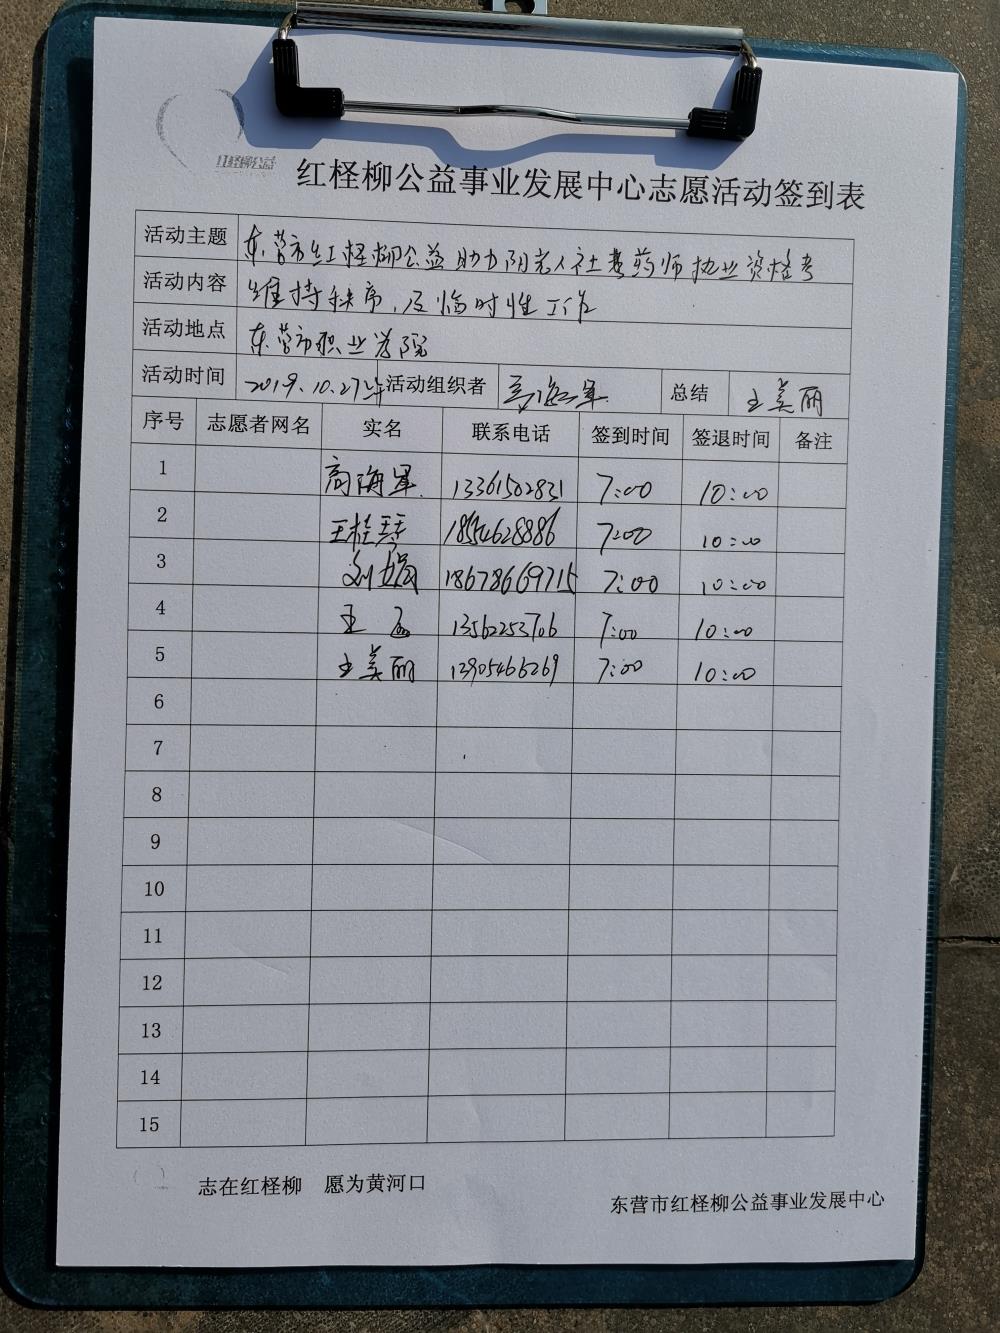 红柽柳公益
红柽柳公益事业发展中心志愿活动签到表
活动主题 东营市红柽柳公益助力阳光人社药师执业资格考
活动内容 维持秩序,及临时性工作
活动地点 东营市职业学院
活动时间 2019.10.27 活动组织者 高海军 总结 王美丽
序号 志愿者网名 实名 联系电话 签到时间 签退时间 备注
1 高海军 13361502831 7:00 10:00
2 王桂琴 18554628886 7:00 10:00
3 刘娟 18678669715 7:00 10:00
4 王 13562253706 7:00 10:00
5 王美丽 13905466269 7:00 10:00
6
7
8
9
10
11
12
13
14
15
志在红柽柳 愿为黄河口
东营市红柽柳公益事业发展中心